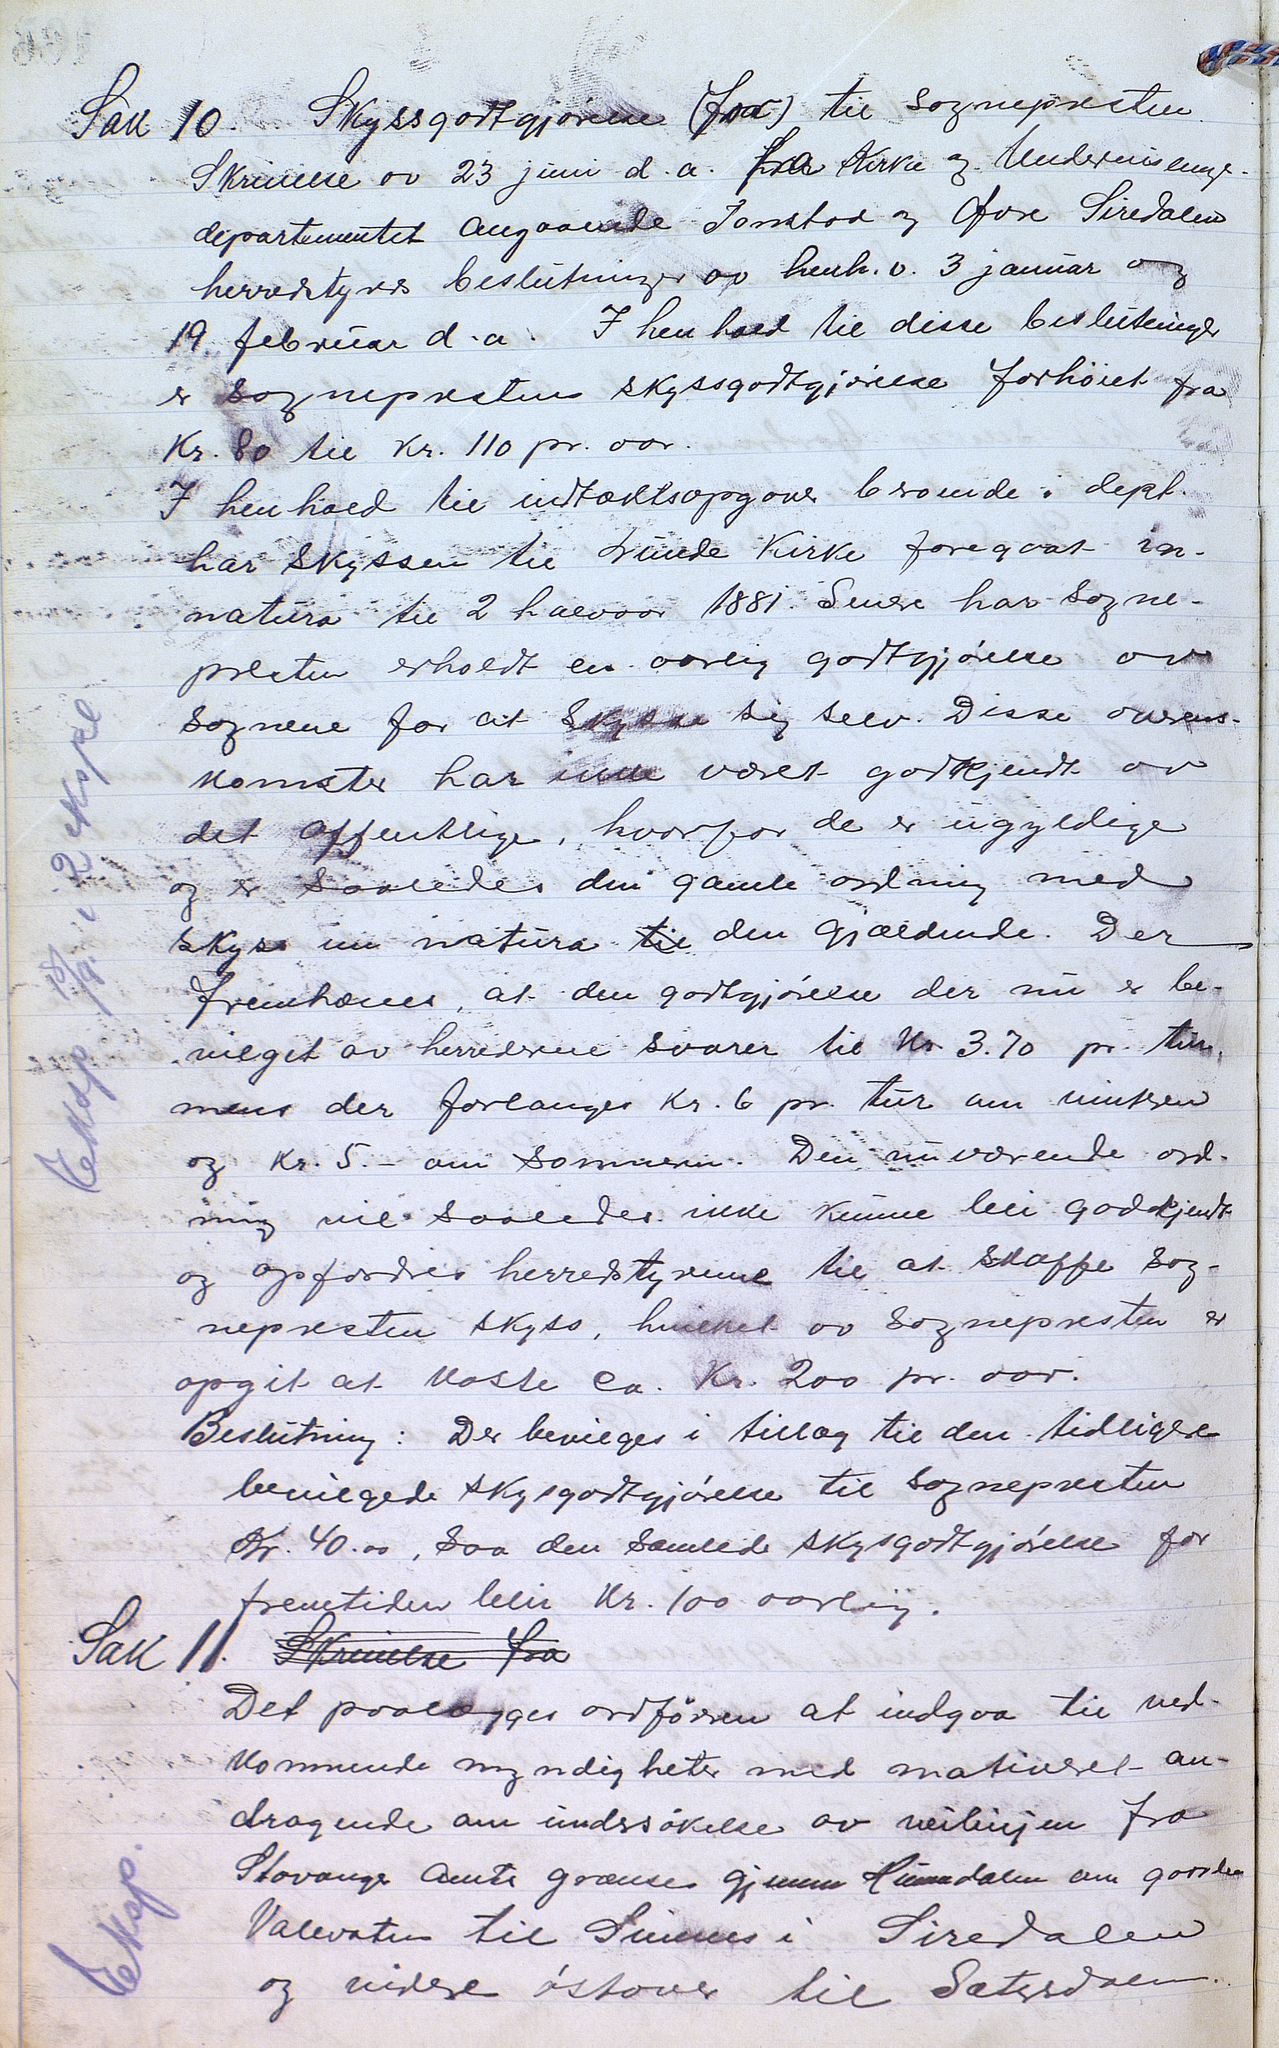 Sak 10. Skyssgodtgjörelse (fra) til sognepresten.
Skrivelse av 23 juni d.a. fra Kirke og Undervisnings-
departementet angaaende Tonstad og Øvre Siredalen
herredstyrers beslutninger av henh. v. 3 januar og
19 februar d.a. I henhold til disse beslutninger
er sogneprestens skyssgodtgjörelse forhöiet fra
Kr. 80 til Kr. 110 pr. aar.
I henhold til indtæktsopgaver beroende i dept.
har skyssen til Lunde Kirke foregaat in-
natura til 2 halvaar 1881. Senere har sogne-
presten erholdt en aarlig godtgjörelse av
sognene for at skysse sig selv. Disse overens-
komster har ikke været godkjendt av
det offentlige, hvorfor de er ugyldige
og er saaledes den gamle ordning med
skyss in natura til den gjældende. Der
fremhæves, at den godtgjörelse der nu er be-
vilget av herrederne svarer til Kr 3.70 pr. tur,
mens der forlanges Kr. 6 pr. tur om vinteren
og Kr. 5.- om sommeren. Den nuværende ord-
ning vil saaledes ikke kunne bli godkjendt
og opfordres herredstyrene til at skaffe sog-
nepresten skyss, hvilket av sognepresten er
opgit at koste ca. Kr. 200 pr. aar.
Beslutning: Der bevilges i tillæg til den tidligere
bevilgede skysgodtgjörelse til sognepresten
Kr. 40.00, saa den samlede skysgodtgjörelse for
fremtiden blir Kr. 100 aarlig.
Sak 11. Skrivelse fra
Det paalægges ordföreren at indgaa til ved-
kommende myndigheter med motiveret an-
dragende om undersökelse av veilinjen fra
Stavanger Amts grænse gjennem Hunnedalen om gaarden
Valevatn til Sinnes i Siredalen
og videre östover til Sætersdalen.
Eksp. 18/9. i 2 ekspl
Eksp.